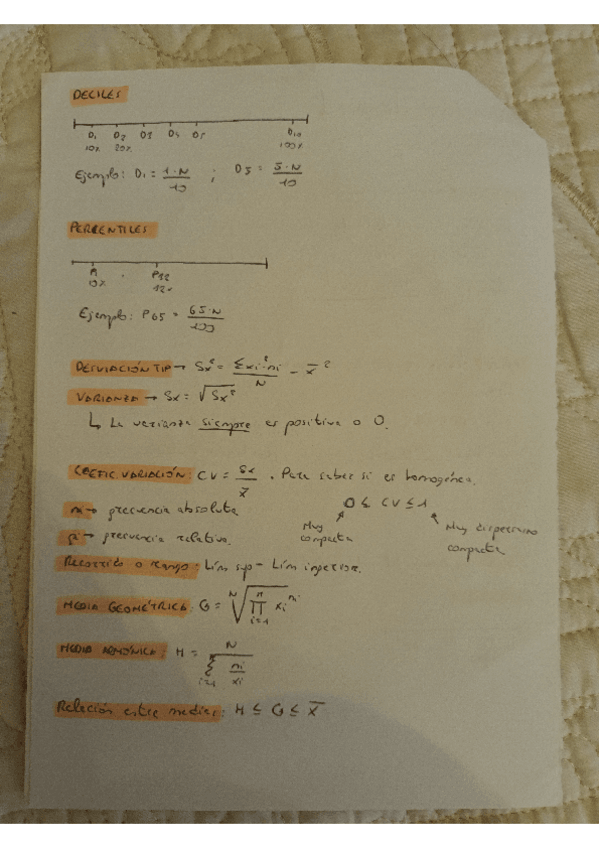 DECILES
D1 D2 D3 D4 D5 D10
10% 20% 100%
Ejemplo: D1 = 1·N/10 ; D5 = 5·N/10
PERCENTILES
P12
12%
Ejemplo: P65 = 65·N/100
DESVIACIÓN TIP → Sx² = Σxi²·ni/N - x̄²
VARIANZA → Sx = √Sx²
↳ La varianza siempre es positiva o 0.
COEFIC VARIACIÓN: CV = Sx/x̄ . Para saber si es homogénea.
n → frecuencia absoluta
0 ≤ CV ≤ 1
Muy compacta
Muy dispersa no compacta
→ frecuencia relativa.
Recorrido o rango: Lím sup - Lím inferior.
MEDIA GEOMÉTRICA: G = ᴺ√∏ᵢ₌₁ⁿ xi^ni
MEDIA ARMÓNICA: H = N/Σᵢ₌₁ ni/xi
Relación entre medias: H ≤ G ≤ x̄